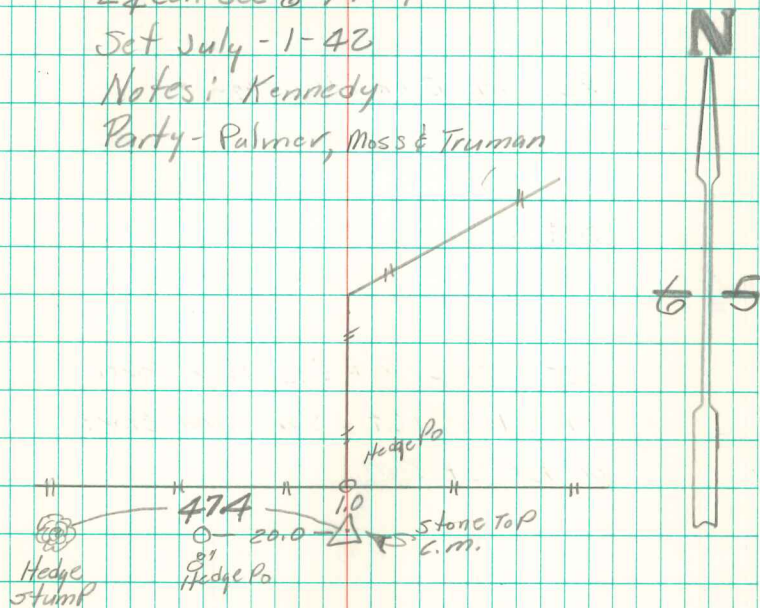 can see
Set July-1-42
Notes: Kennedy
Party- Palmer, Moss & Truman
N
6 5
Hedge Po
47.4
1.0
20.0
Stone Top
C.M.
8"
Hedge Po
Hedge
Stump